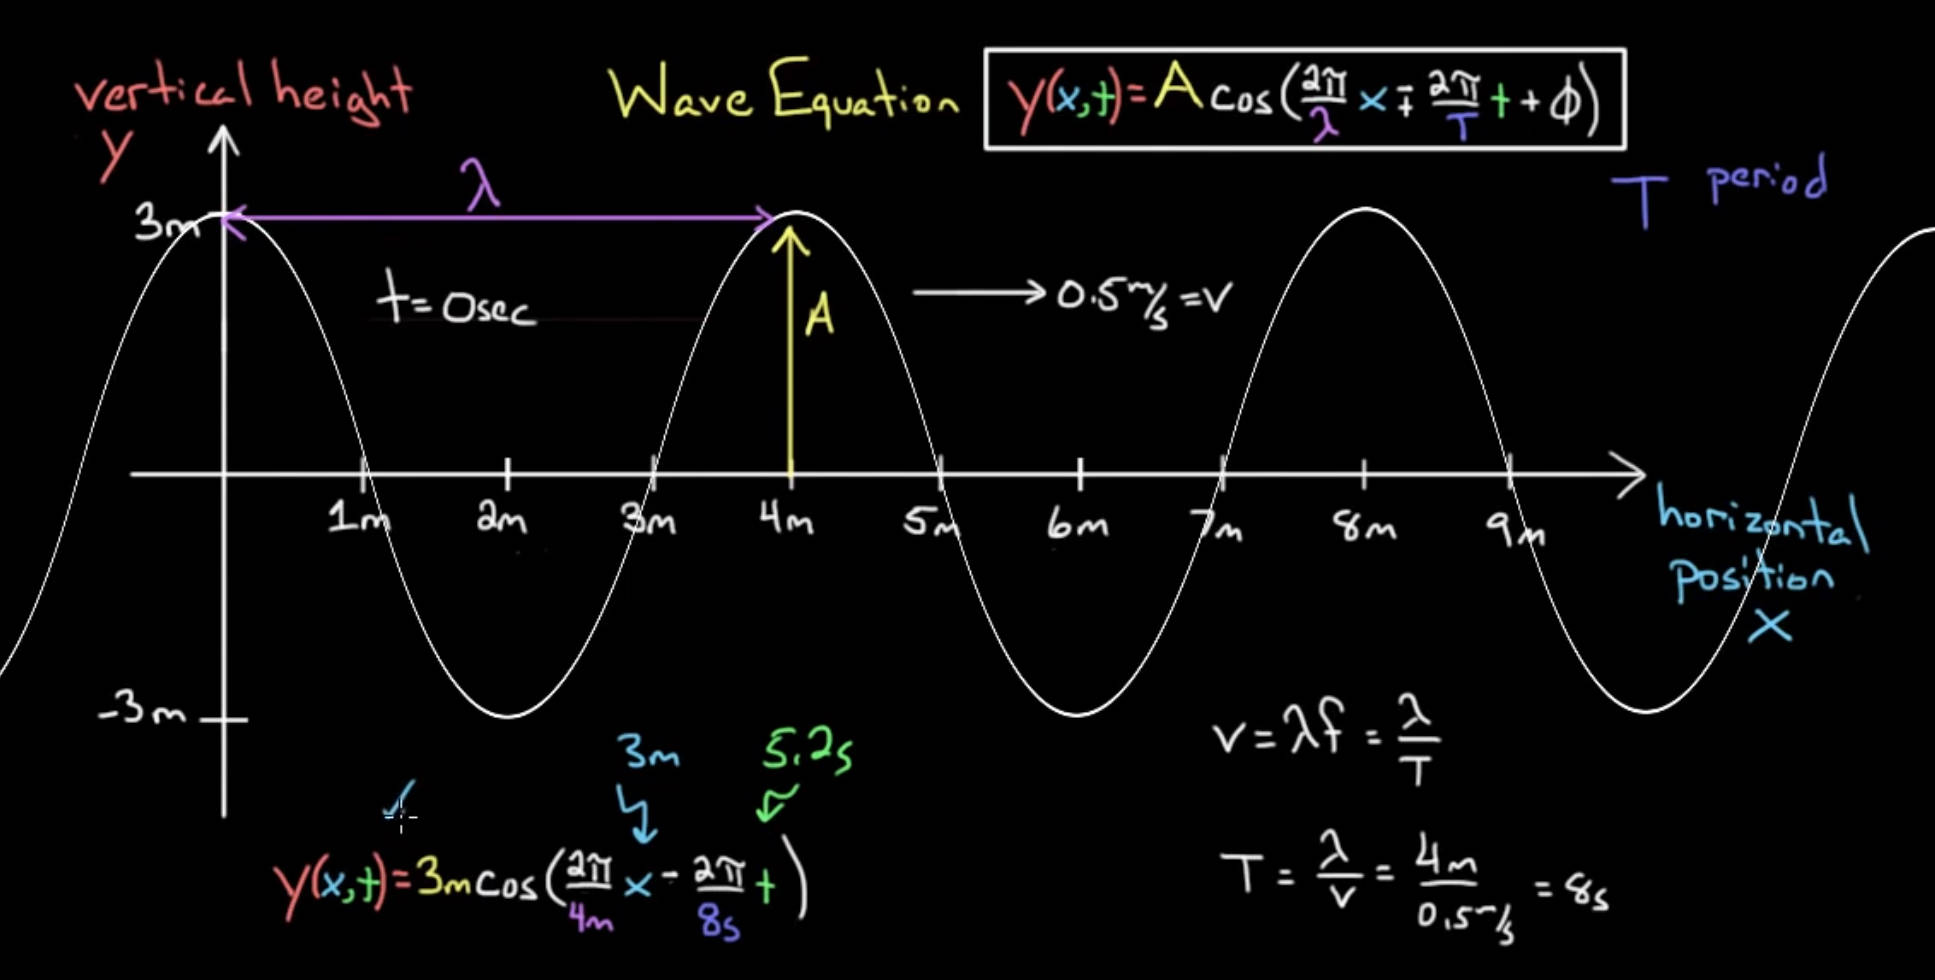 vertical height
y
Wave Equation
y(x,t)=A cos(2π/λ x ∓ 2π/T t + φ)
T period
λ
3m
t=0sec
A
→0.5 m/s =v
1m 2m 3m 4m 5m 6m 7m 8m 9m
horizontal
position
x
-3m
3m
5.2s
v=λf=λ/T
y(x,t)=3m cos(2π/4m x - 2π/8s t)
T=λ/v=4m/0.5 m/s=8s